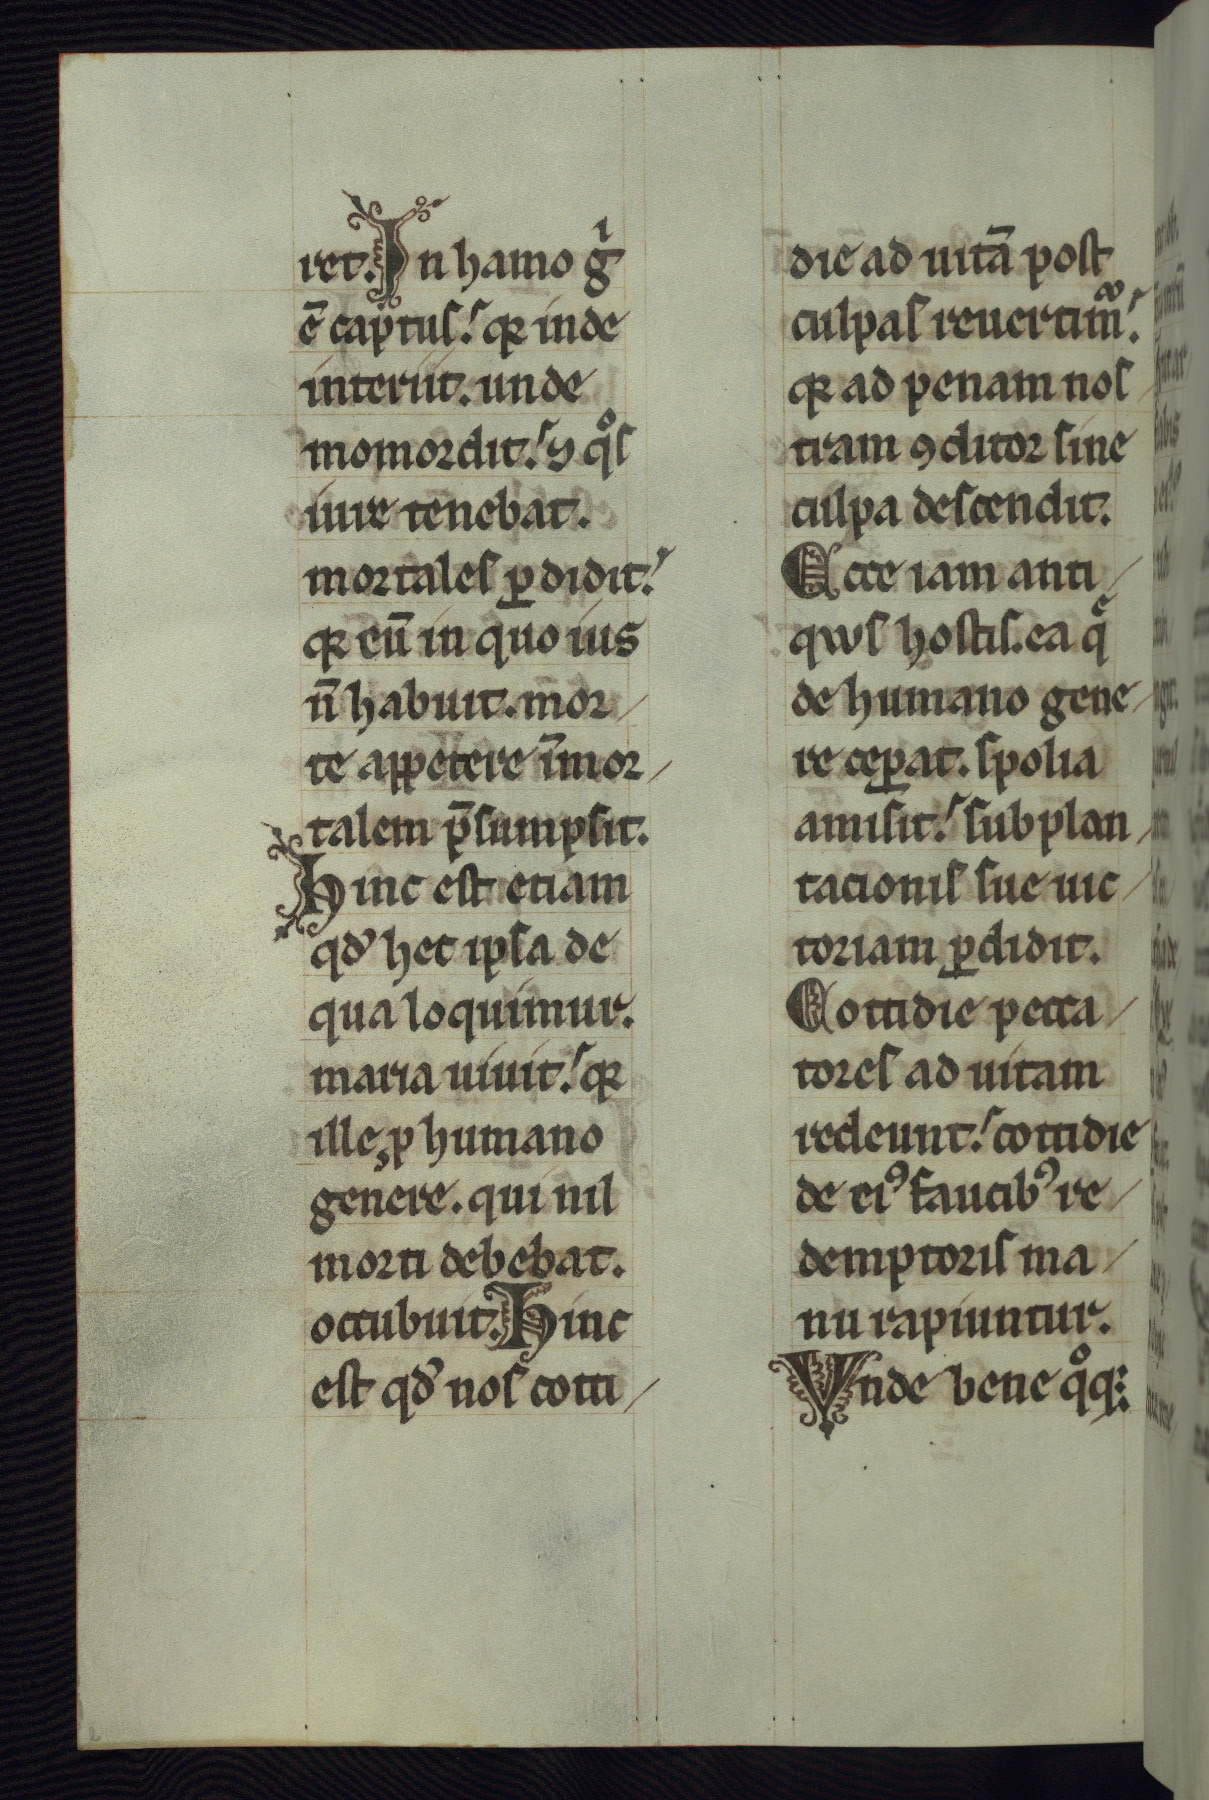 ret. In hamo gͥ
ē captus. qꝛ inde
interiit. unde
momordit. ꝯ qͦs
iure tenebat.
mortales ꝑdidit.
qꝛ eū in quo ius
n̄ habuit. mor
te appetere īmor
talem p̄sumpsit.
Hinc est etiam
qđ hec ipsa de
qua loquimur.
maria uiuit. qꝛ
ille, ꝓ humano
genere. qui nil
morti debebat.
occubuit. Hinc
est qđ nos cotti
die ad uitā post
culpas reuertim̄.
qꝛ ad penam nos
tram ꝯditor sine
culpa descendit.
Ecce iam anti
qws hostis. ea q̄
de humano gene
re ceꝑat. spolia
amisit. subplan
tacionis sue uic
toriam ꝑdidit.
Cottidie pecca
tores ad uitam
redeunt. cottidie
de eiꝰ faucibꝰ re
demptoris ma
nu rapiuntur.
Vnde bene qͦq: